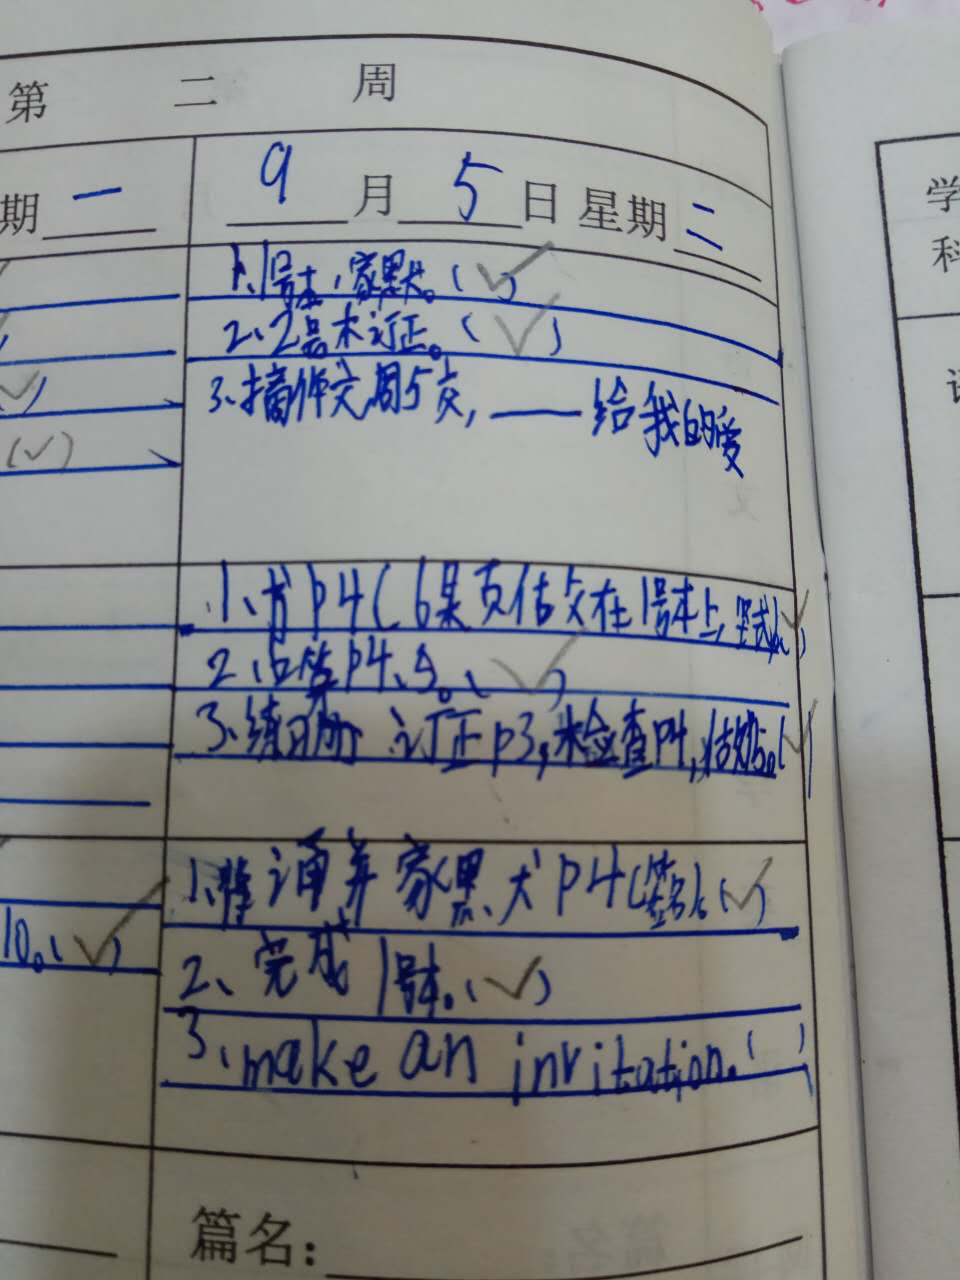 第 二 周
期 一
9 月 5 日 星期 二
1、1号本，家默。(✓)
2、2号本订正。(✓)
3、摘作文周5交，——给我的爱
(✓)
1、书P4(6某页估交在1号本上,竖式)(✓)
2、口算P4、5。(✓)
3、练习册 订正P3,未检查P4,
1、背诵并家默P4(签名)。(✓)
10。(✓)
2、完成1号本。(✓)
3、make an invitation.( )
篇名:
学
科